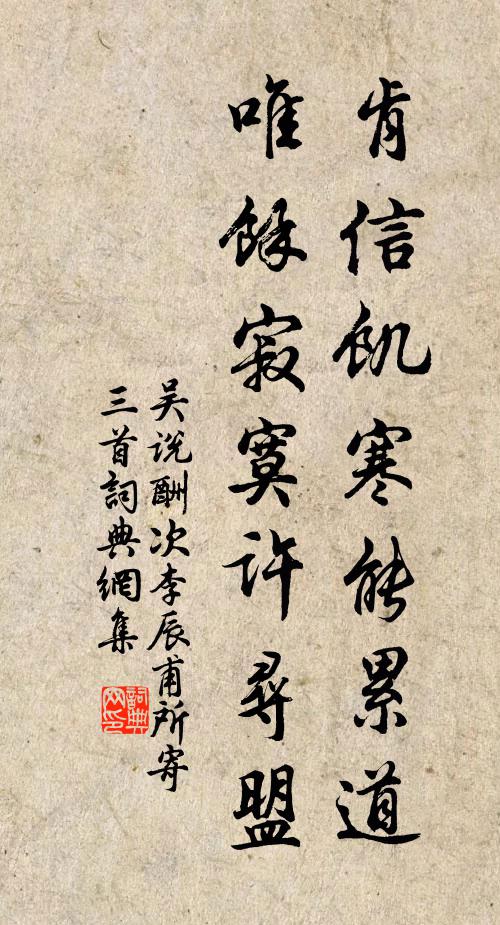 肯信飢寒能累道
唯餘寂寞許尋盟
吴说酬次李辰甫所寄
三首詞典網集
詞典
网印